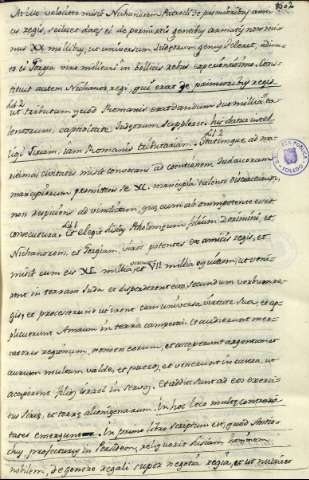 1302
At ille velociter misit Nichanorem Patrocli de primoribus ami-
cis regis, datis ei de permixtis gentibus armatis non mi-
nus XX millibus, ut universum Judeorum genus deleret, adiun-
cto ei Gorgia viro militari in bellicis rebus experientissimo. Cons-
tituit autem Nichanor regi, qui erat de primoribus regis
ut tributum quod Romanis erat dandum duo millia ta-
lentorum, captivitate Judeorum suppleret: his
Romanis tributariam. Statimque, ad ma-
ritimas civitates misit convocans ad coemtionem Judaicorum
mancipiorum promittens se XC. mancipia talento distracturum,
non respiciens ad vindictam, que eum ab omnipotente esset
consecutura. Et elegit Lisias Ptolomeum filium Dorimini, et
Nichanorem, et Gorgiam, viros potentes ex amicis regis, et
misit cum eis XL millia virorum et VII millia equitum, ut veni-
rent in terram Juda et disperderent eam secundum verbum re-
gis; et processerunt ut irent cum universa virtute sua, et ap-
plicuerunt Amaum in terra campestri. Et audierunt mer-
catores regionum, nomen eorum, et acceperunt argentum et
aurum multum valde, et pueros, et venerunt in castra, ut
acciperent filios Israel in servos. Et additi sunt ad eos exerci-
tus Sirie, et terre alienigenarum. In hoc loco multe contrarie-
tates emergunt. In primo libro scriptum est, quod Antio-
chus, profecturus in Persidem, reliquerit Lisiam hominem
nobilem, de genere regali super negotia regia, et ut